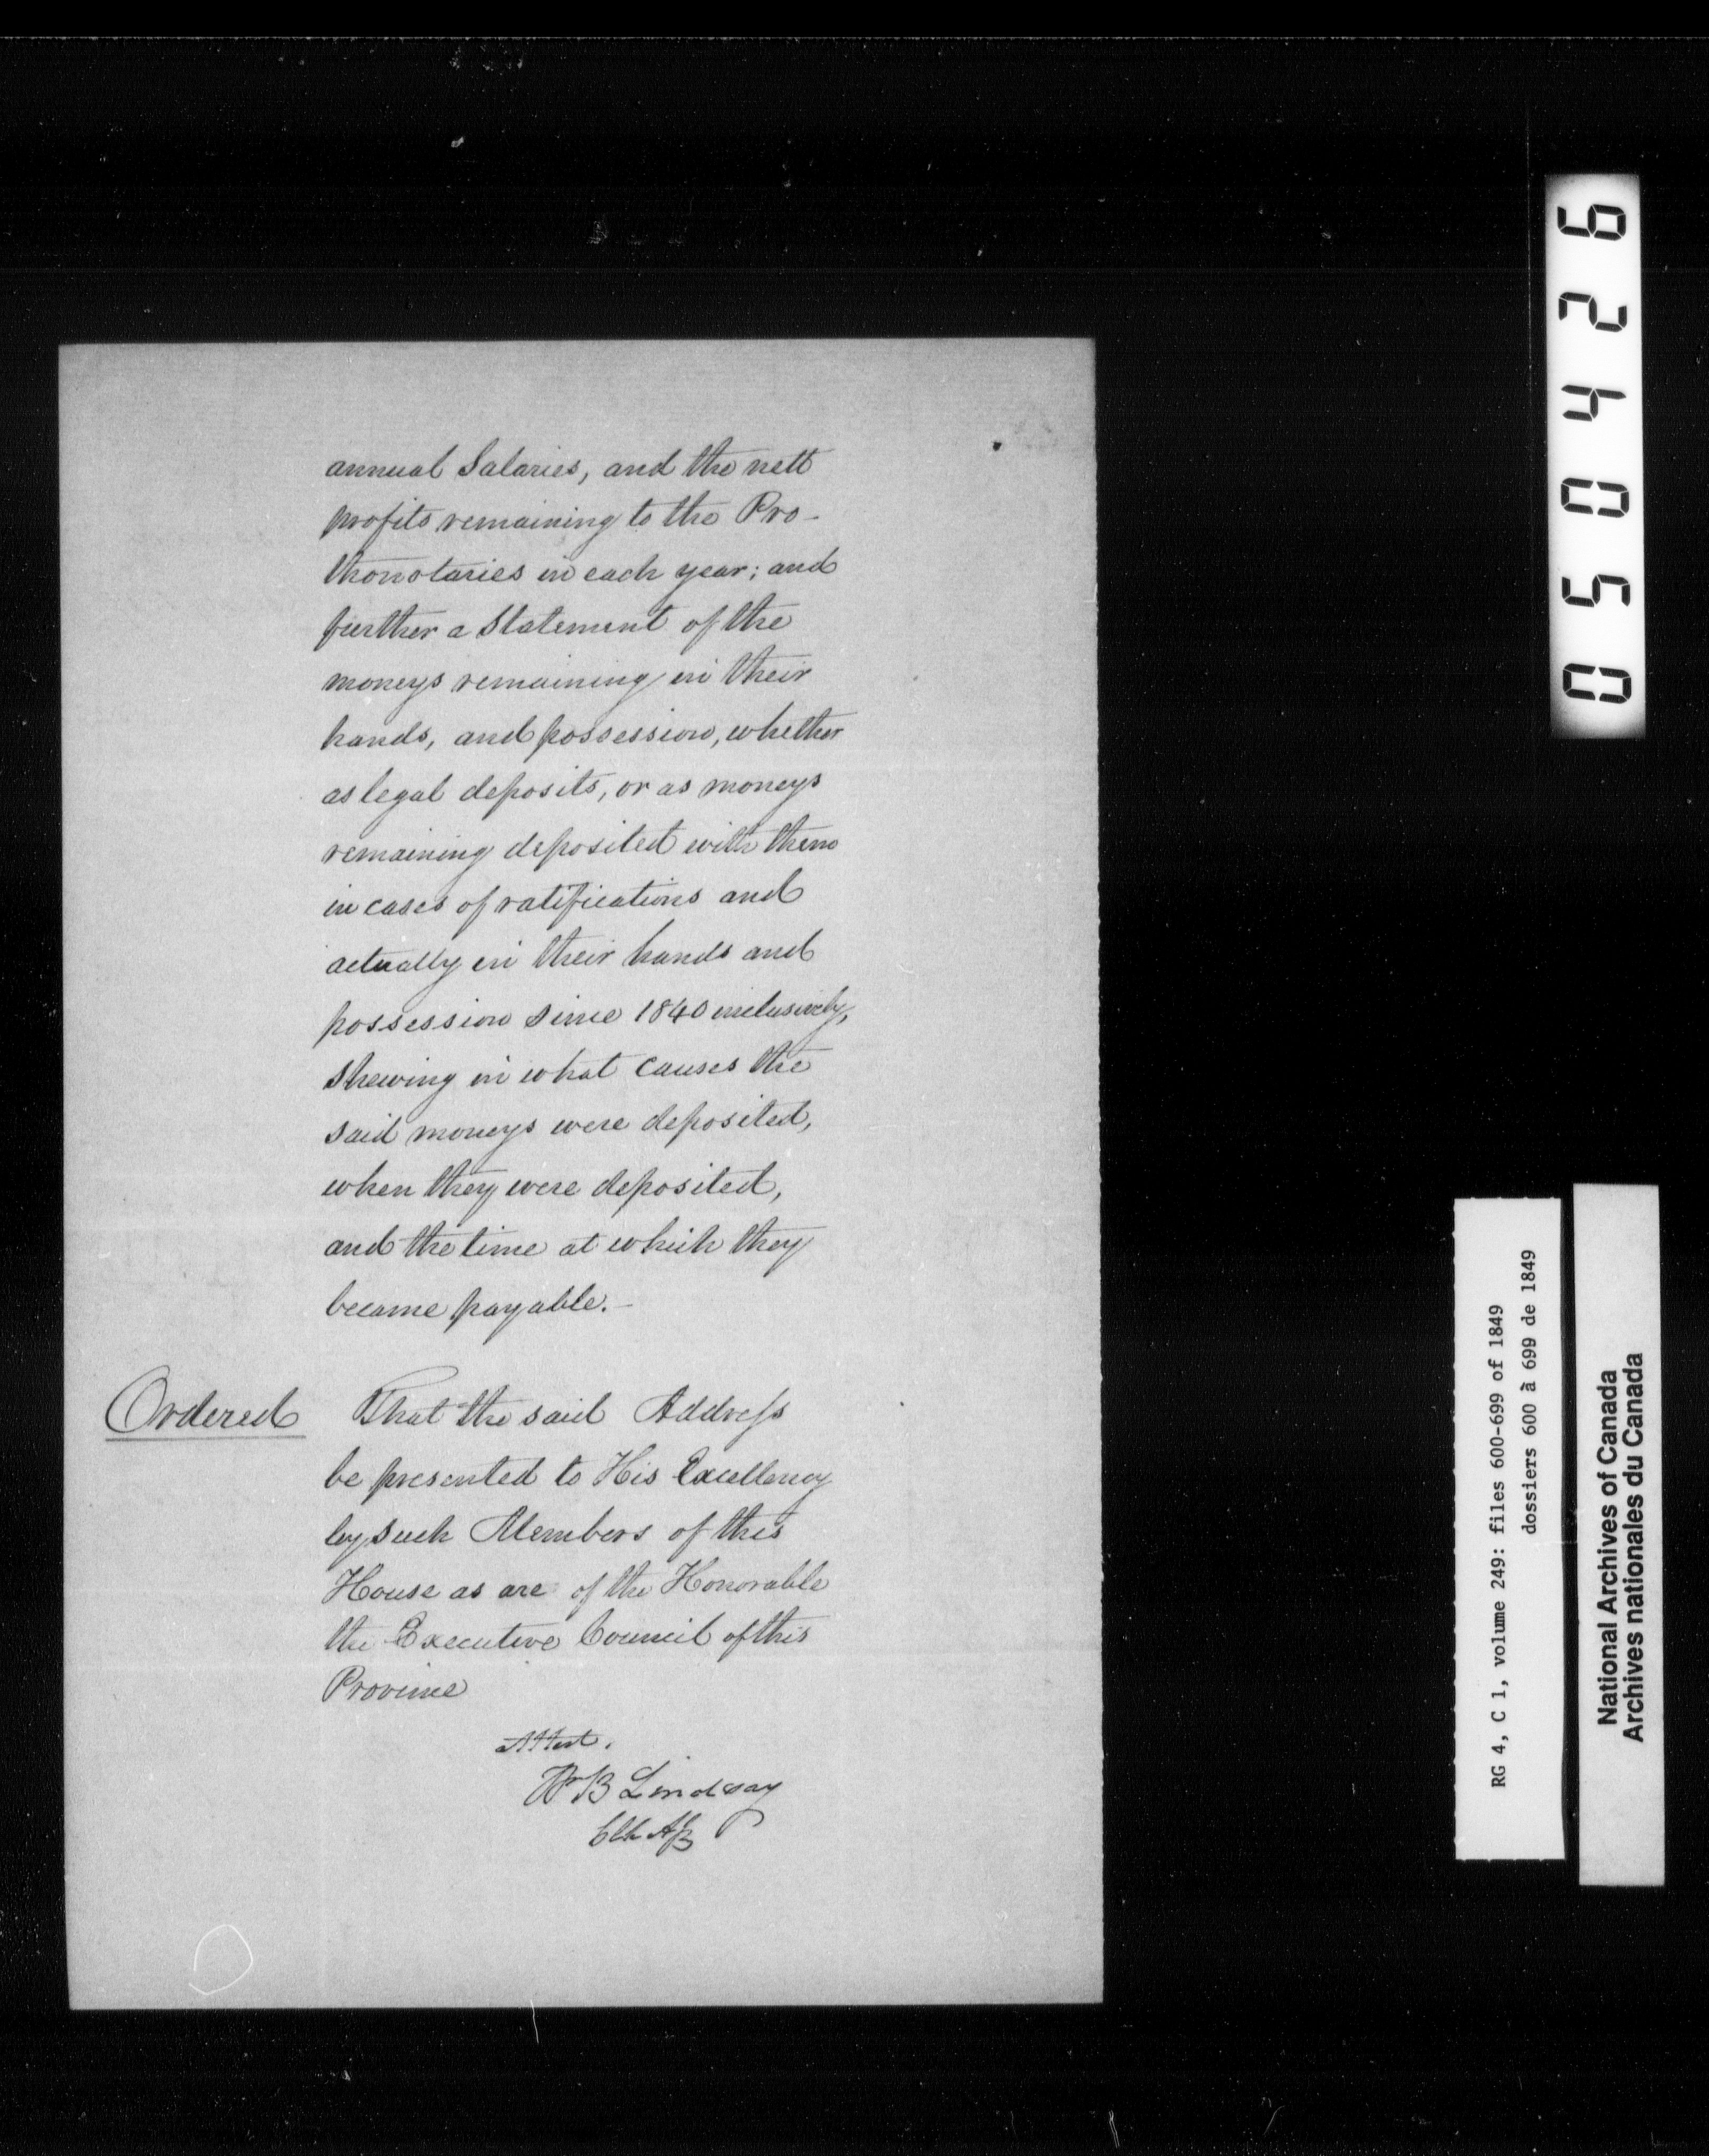 annual Salaries, and the nett
profits remaining to the Pro-
thonotaries in each year; and
further a Statement of the
moneys remaining in their
hands, and possession, whether
as legal deposits, or as moneys
remaining deposited with them
in cases of ratifications and
actually in their hands and
possession since 1840 inclusively,
shewing in what causes the
said moneys were deposited,
when they were deposited,
and the time at which they
became payable. -
Ordered That the said Address
be presented to His Excellency
by such Members of this
House as are of the Honorable
the Executive Council of this
Province
Attest.
Wm B Lindsay
Clk Assy
050426
RG 4, C 1, volume 249: files 600-699 of 1849
dossiers 600 à 699 de 1849
National Archives of Canada
Archives nationales du Canada